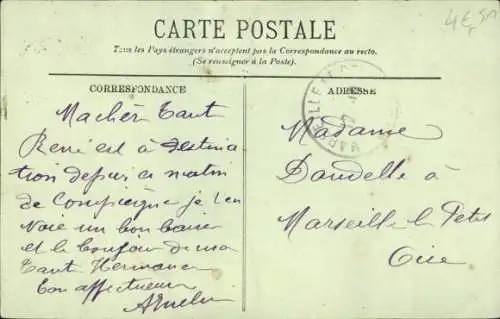 4€,50
CARTE POSTALE
Tous les Pays étrangers n'acceptent pas la Correspondance au recto.
(Se renseigner à la Poste).
CORRESPONDANCE
Machèr Tant
René est à destina
tion depuis ce matin
de Compiègne je t'en
Voie un bon baiser
et le bonjour de ma
Tant Hermance
ton affectueux
ADRESSE
Madame
Dandelle à
Marseille le Petit
Oise